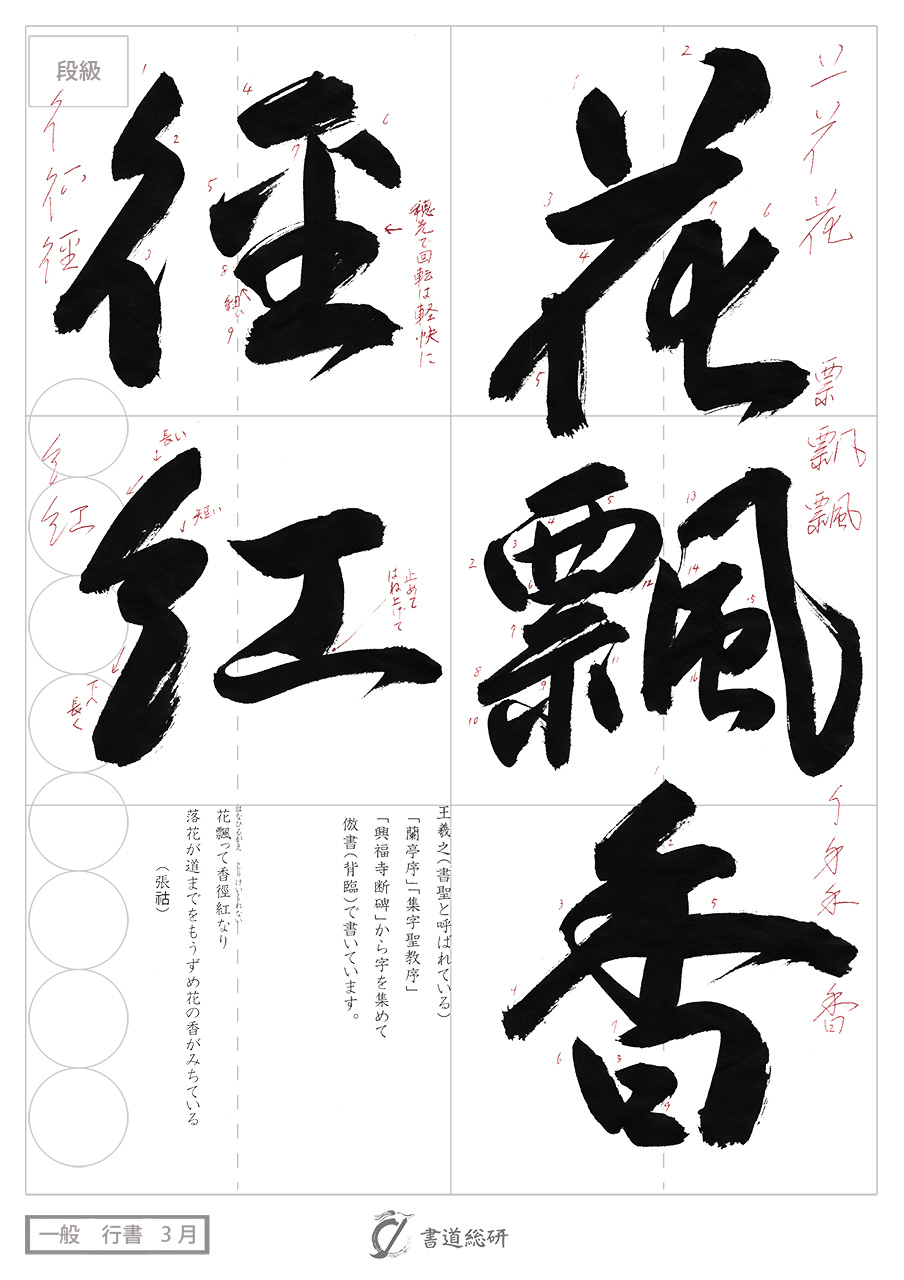 花
飄
香
徑
紅
穂先で回転は軽快に
細い
長い
短い
止めて
はね上げて
下へ
長く
王羲之(書聖と呼ばれている)
「蘭亭序」「集字聖教序」
「興福寺断碑」から字を集めて
倣書(背臨)で書いています。
花飄って香徑紅なり
落花が道までをもうずめ花の香がみちている
(張祜)
段級
一般 行書 3月
書道総研